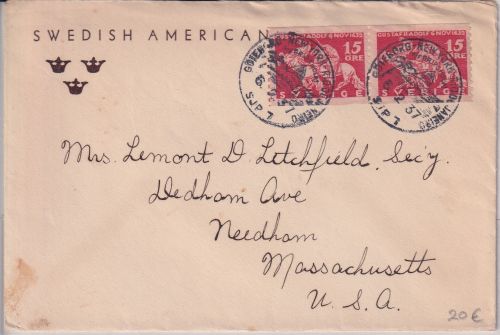 SWEDISH AMERICAN
GUSTAF II ADOLF 6 NOV 1632
15
ÖRE
SVERIGE
GUSTAF II ADOLF 6 NOV 1632
15
ÖRE
SVERIGE
Mrs. Lemont D. Letchfield, Sec'y.
Dedham Ave
Needham
Massachusetts
U. S. A.
20€